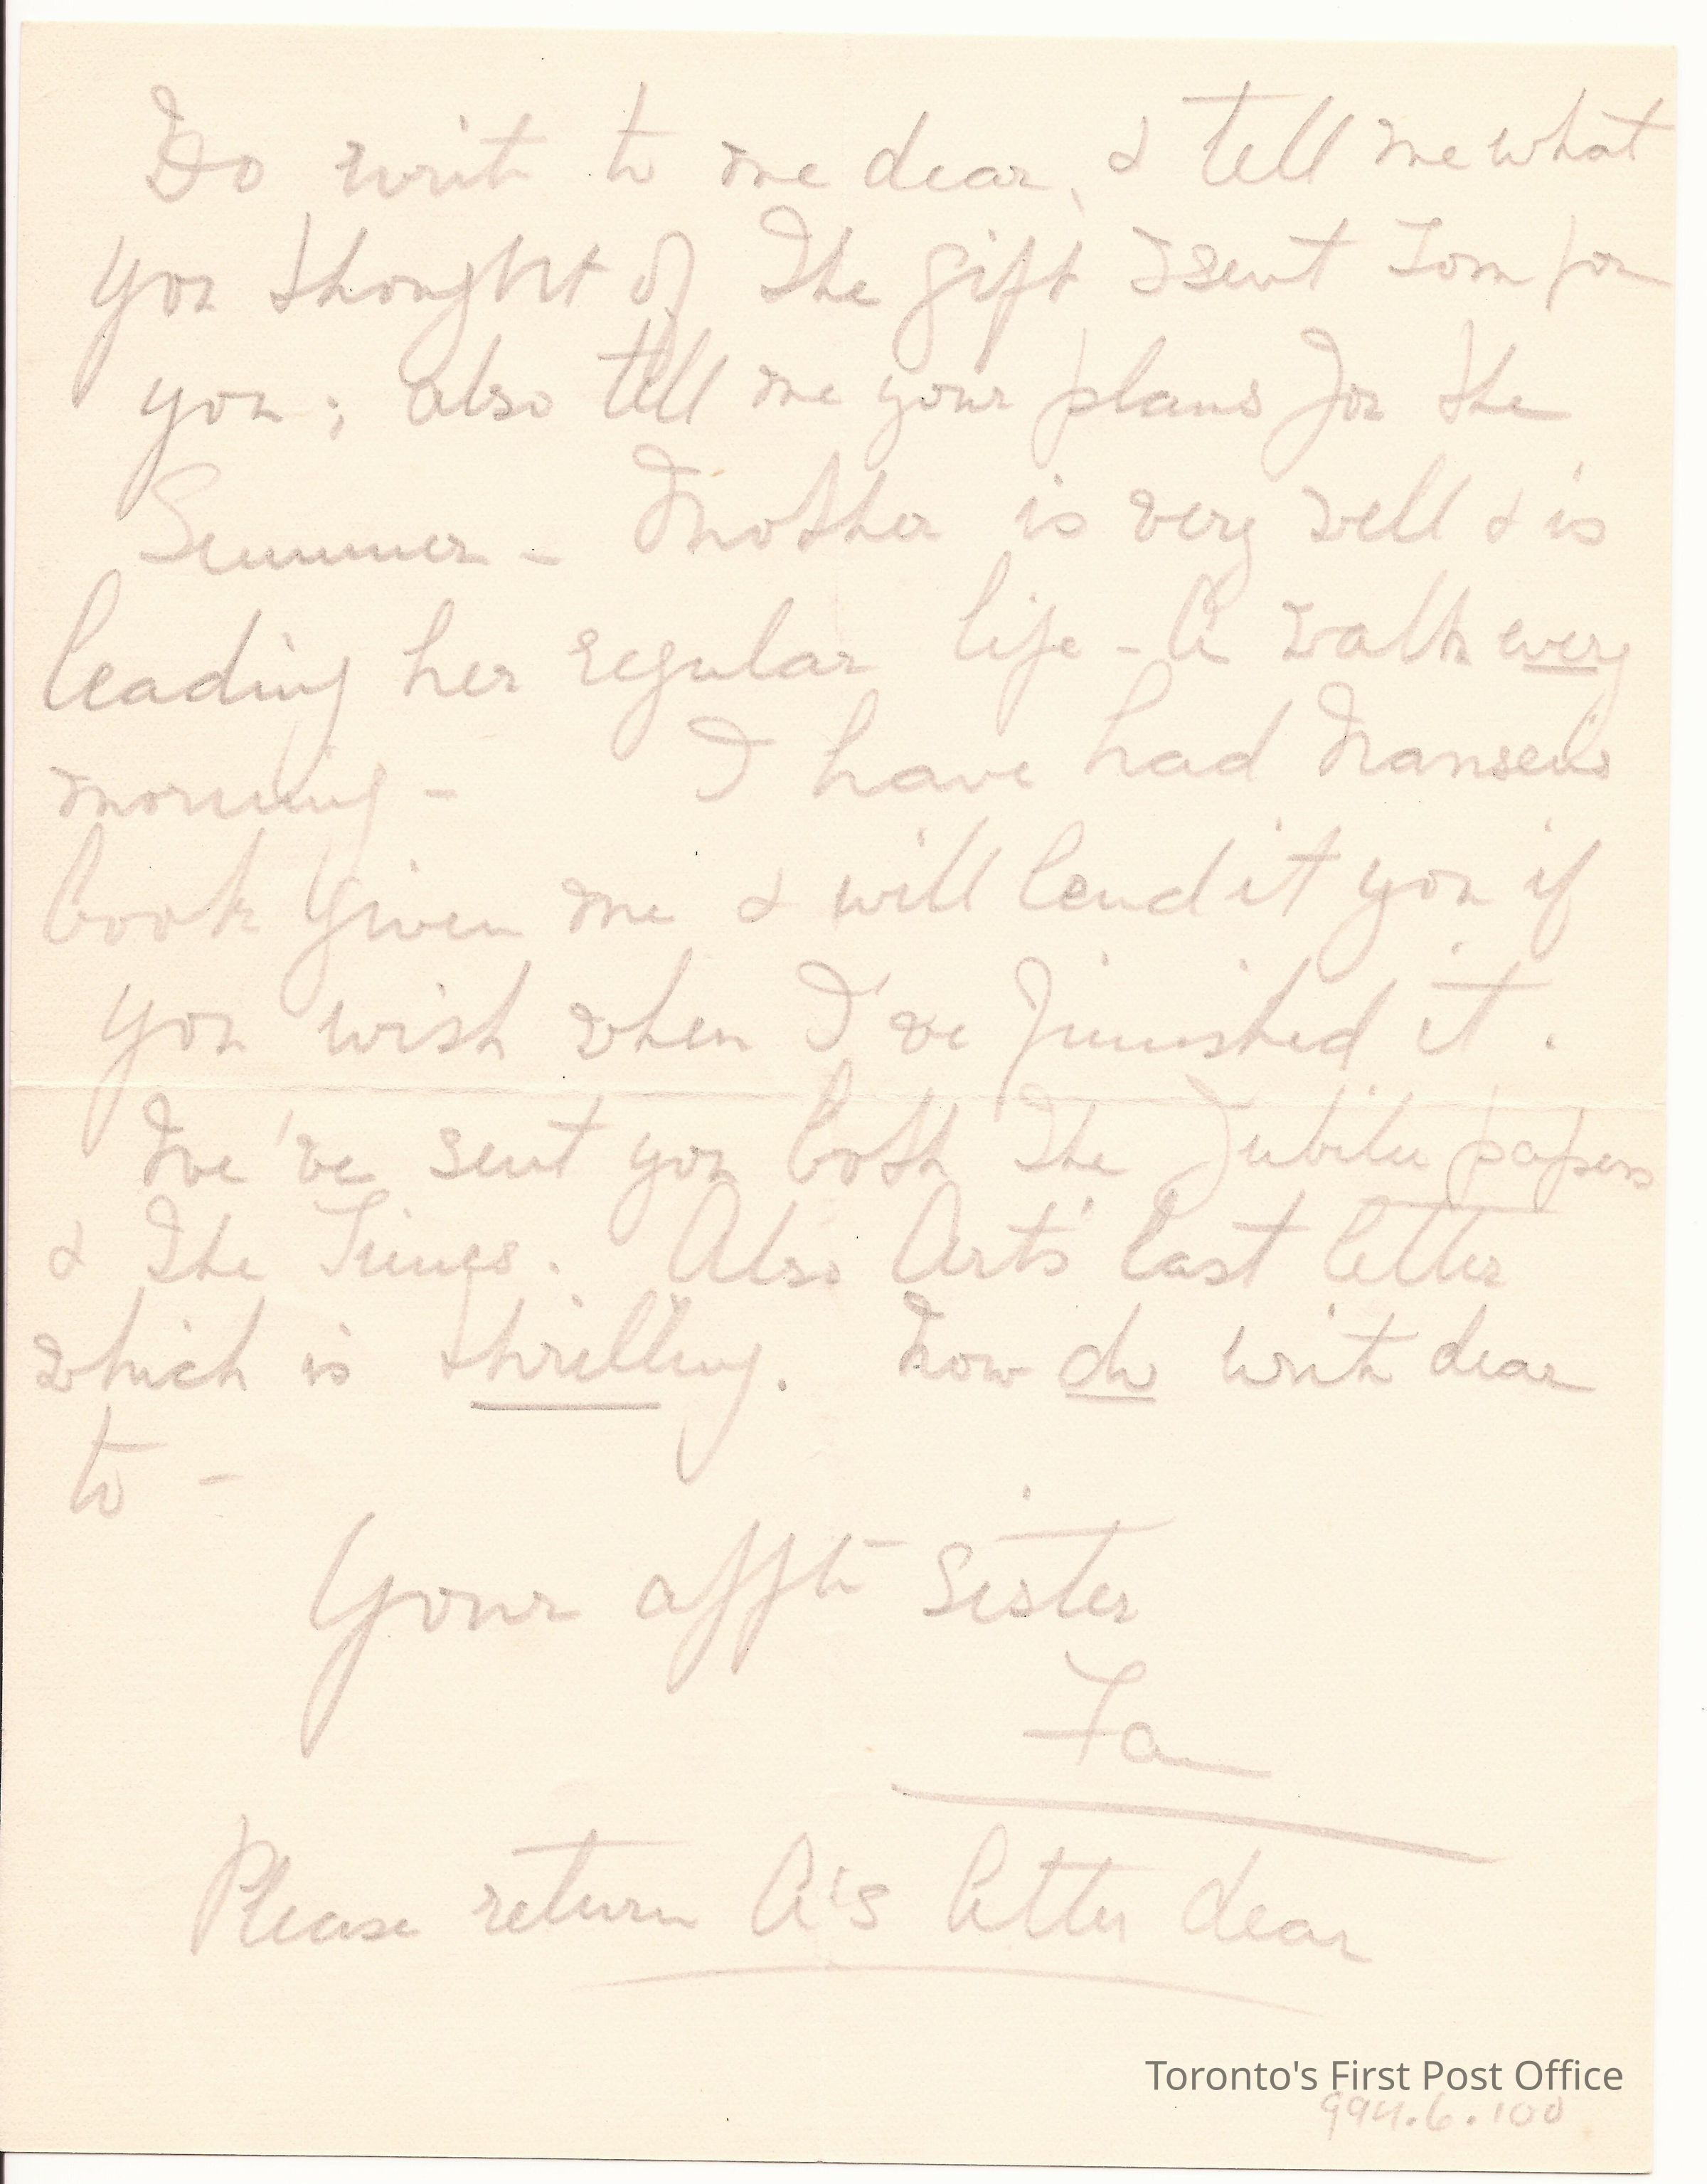 Do write to me dear, & tell me what
you thought of the gift I sent Tom for
you; also tell me your plans for the
Summer - Mother is very well & is
leading her regular life - A walk every
morning - I have had Nansen's
book given me & will lend it you if
you wish when I've finished it.
We've sent you both the Jubilee papers
& the Times. Also Art's last letter
which is thrilling. Now do write dear
to -
Your affte sister
Fa
Please return A's letter dear
Toronto's First Post Office
994.6.100